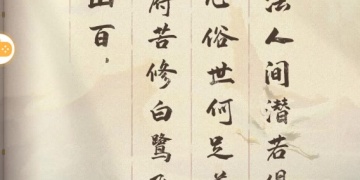 法人间潜若
俗世何足
府苦修白鹭
山百，